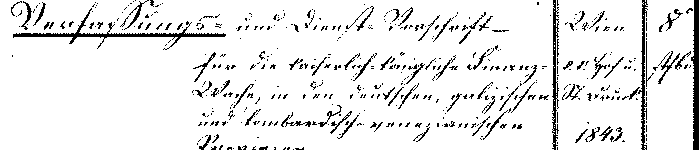 Verfassungs- und Dienst-Vorschrift Wien 8°
für die kaiserlich-königliche Finanz- k.k. Hof u.
Wache, in den deutschen, galizischen St. Druck.
und lombardisch-venezianischen 1843.
Provinzen